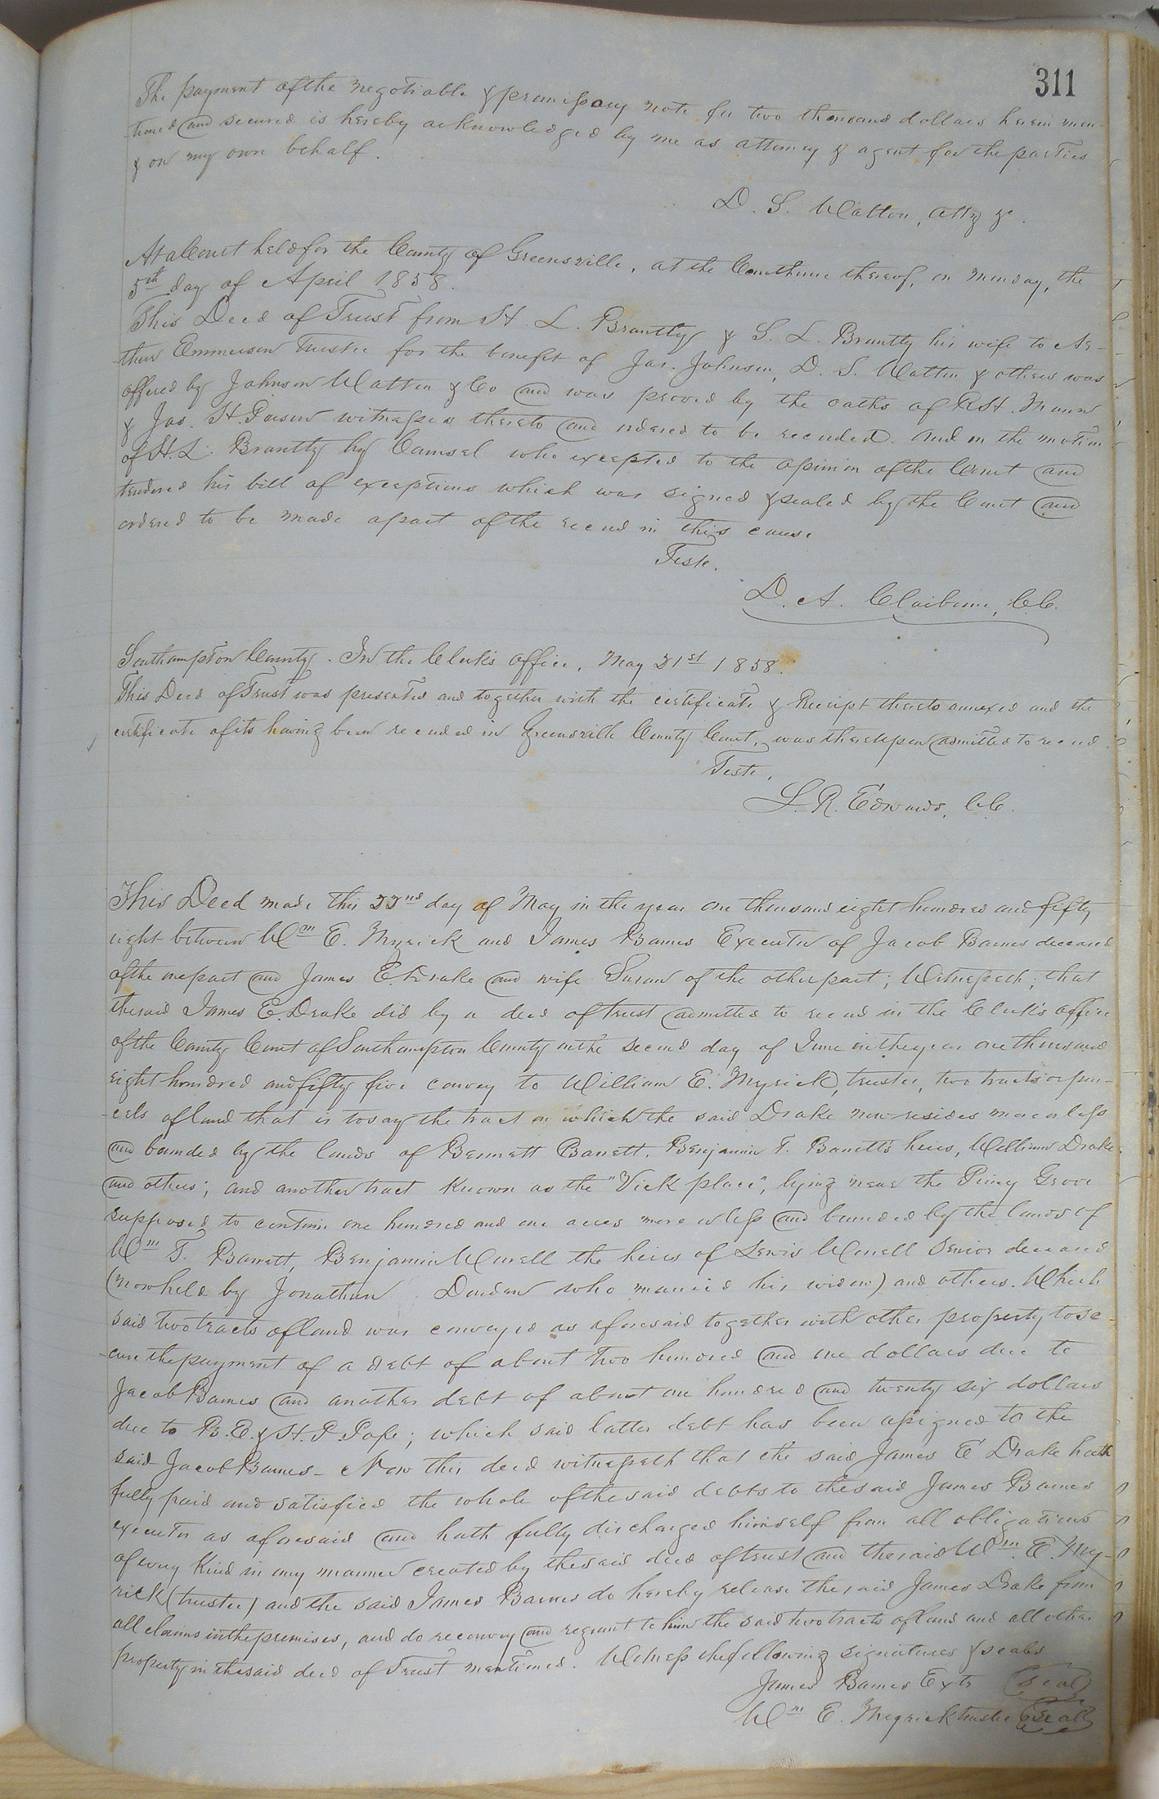 311
The payment of the negotiable & promissory note for two thousand dollars herein men-
tioned and secured is hereby acknowledged by me as attorney & agent for the parties
& on my own behalf.
D. S. Watton, Atty &c.
At a Court held for the County of Greensville, at the Courthouse thereof, on Monday, the
5th day of April 1858.
This Deed of Trust from H. L. Brantly & S. L. Brantly his wife to Ar-
thur Emmerson Trustee for the benefit of Jas. Johnson, D. S. Watton & others was
offered by Johnson Watton & Co and was proved by the oaths of R.H. Mann
& Jas. H. witnesses thereto and ordered to be recorded. And on the motion
of H. L. Brantly by Counsel who excepted to the opinion of the Court and
tendered his bill of exceptions which was signed & sealed by the Court and
ordered to be made a part of the record in this cause.
Teste.
D. A. Claiborne, C.C.
Southampton County. In the Clerk's office, May 31st 1858.
This Deed of Trust was presented and together with the certificate & Receipt thereto annexed and the
certificate of its having been recorded in Greensville County Court, was thereupon admitted to record
Teste,
L. R. Edwards, C.C.
This Deed made this 22nd day of May in the year one thousand eight hundred and fifty
eight between Wm E. Myrick and James Barnes Executor of Jacob Barnes deceased
of the one part and James E. Drake and wife Susan of the other part; Witnesseth; that
the said James E. Drake did by a deed of trust admitted to record in the Clerk's office
of the County Court of Southampton County on the second day of June in the year one thousand
eight hundred and fifty five convey to William E. Myrick, trustee, two tracts or par-
cels of land that is to say the tract on which the said Drake now resides more or less
and bounded by the lands of Bennett Barrett, Benjamin F. Barrett's heirs, William Drake
and others; and another tract known as the "Vick place", lying near the Piney Grove
supposed to contain one hundred and one acres more or less and bounded by the lands of
Wm T. Barrett, Benjamin Worrell the heirs of Lewis Worrell Senior deceased
(now held by Jonathan Darden who married his widow) and others. Which
said two tracts of land was conveyed as aforesaid together with other property to se-
cure the payment of a debt of about two hundred and one dollars due to
Jacob Barnes and another debt of about one hundred and twenty six dollars
due to B.E. & H. P. Pope; which said latter debt has been assigned to the
said Jacob Barnes- Now this deed witnesseth that the said James E Drake hath
fully paid and satisfied the whole of the said debts to the said James Barnes
executor as aforesaid and hath fully discharged himself from all obligations
of every kind in any manner created by the said deed of trust and the said Wm. E. My-
rick (trustee) and the said James Barnes do hereby release the said James Drake from
all claims in the premises, and do reconvey and regrant to him the said two tracts of land and all other
property in the said deed of Trust mentioned. Witness the following signatures & seals
James Barnes Extr (seal)
Wm E. Myrick trustee (seal)